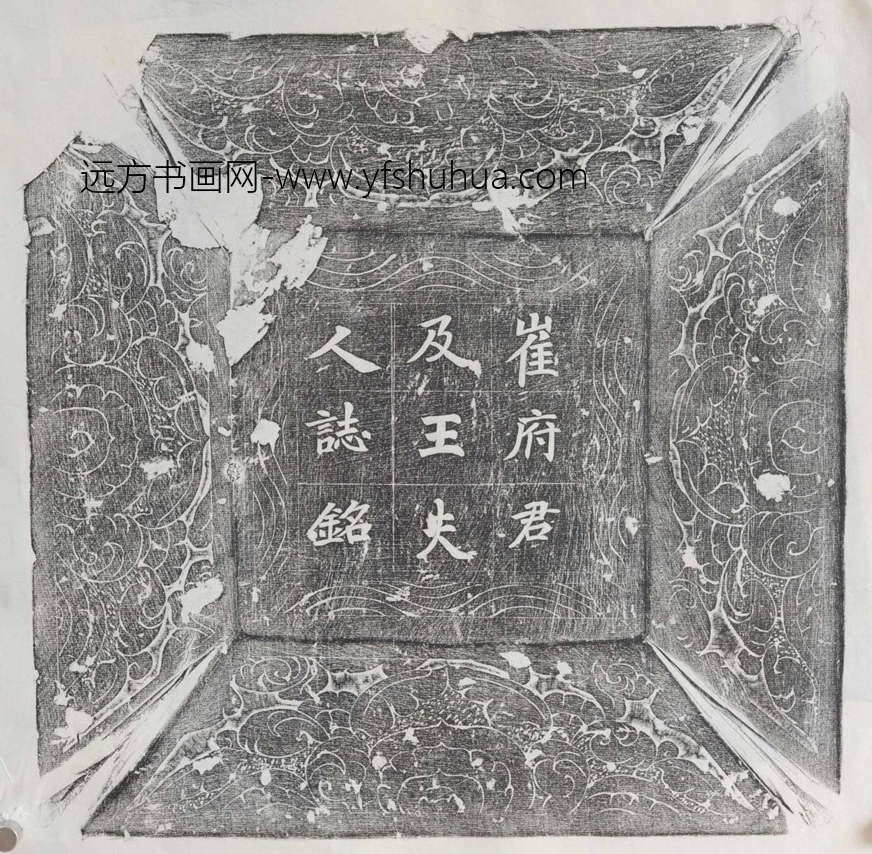 远方书画网-www.yfshuhua.com
崔府君
及王夫
人誌銘